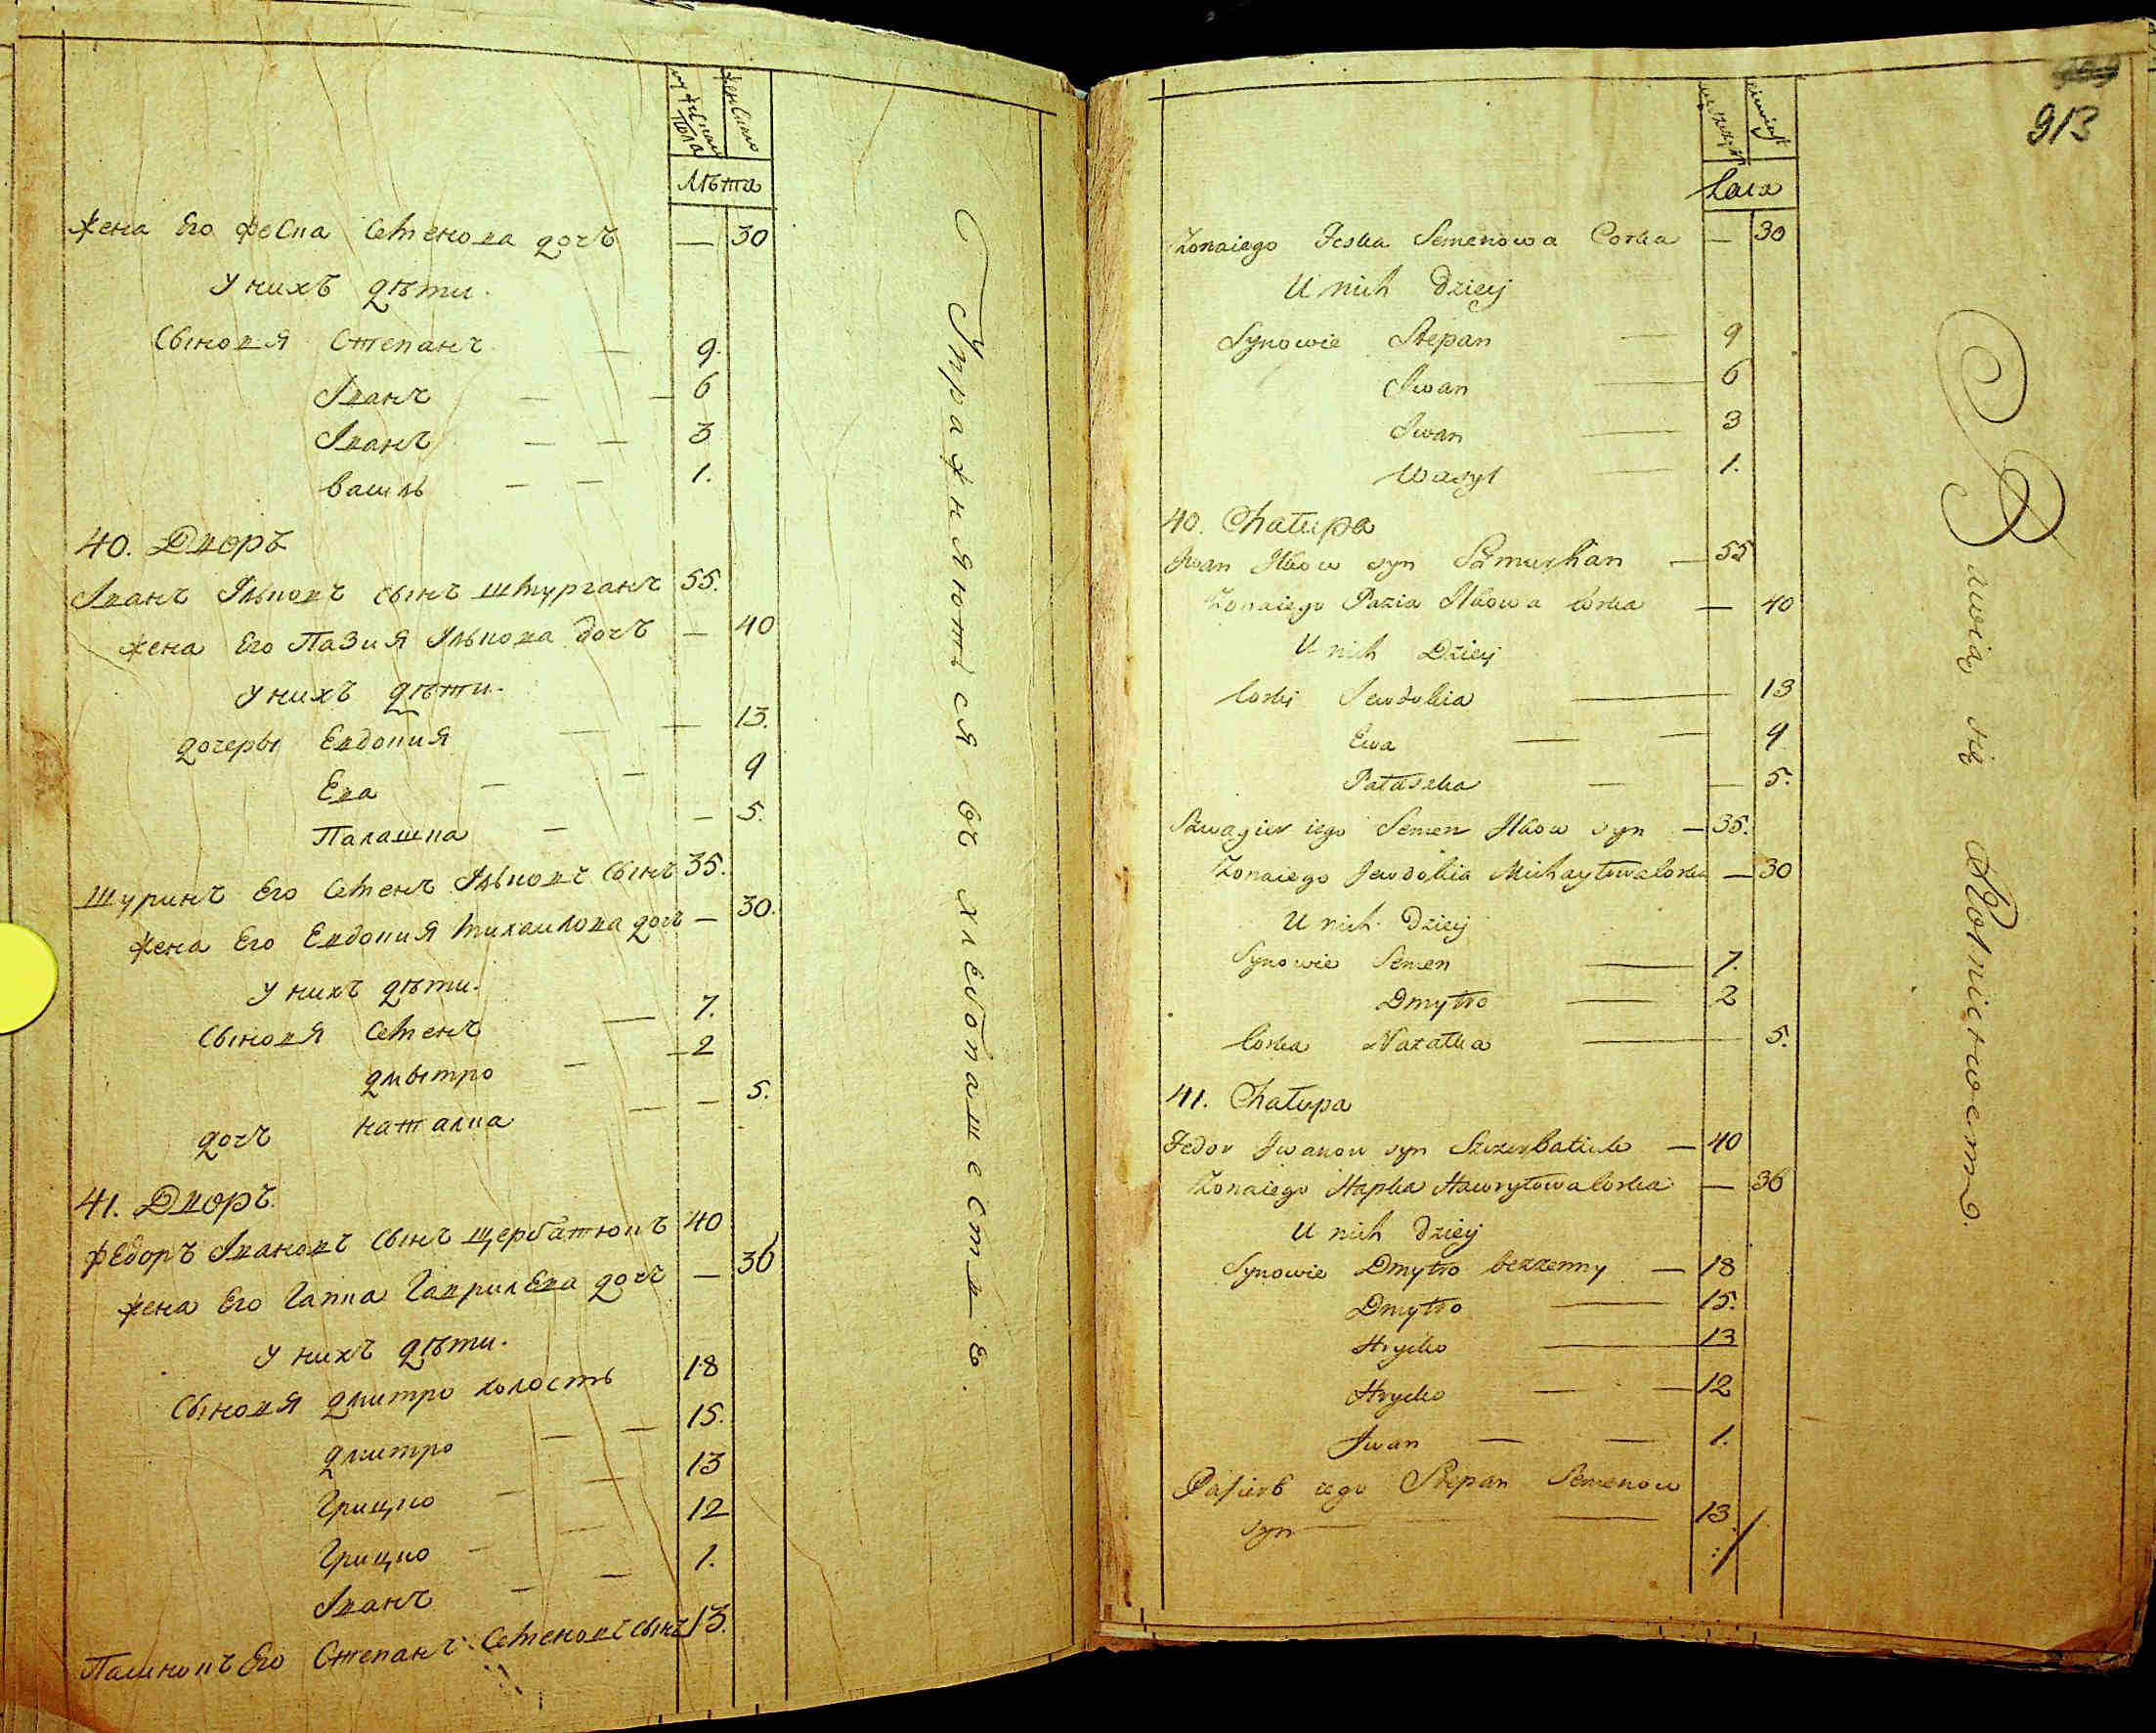 мужеска пола
женска
Лѣта
жена Его Феска Семенова дочъ — 30
У нихъ дѣти.
Сыновя Степанъ — 9.
Іванъ — — 6
Іванъ — — 3
Василь — — 1.
40. Дворъ
Іванъ Ільковъ сынъ Шмурганъ 55.
жена Его Пазия Ількова дочъ — 40
У нихъ дѣти.
дочеры Евдокия — — 13.
Ева — — 9
Палашка — — 5.
Шуринъ Его Семенъ Ільковъ Сынъ 35.
жена Его Евдокия Михаилова дочъ — 30.
У нихъ дѣти.
Сыновя Семенъ — 7.
Дмытро — — 2
дочъ Наталка — — 5.
41. Дворъ
Федоръ Івановъ Сынъ Щербатюкъ 40
жена Его Гапка Гаврилева дочъ — 36
У нихъ дѣти.
Сыновя Дмитро холостъ 18
Дмитро — — 15.
Грицко — — 13
Грицко — — 12
Іванъ — — 1.
Пасинокъ Его Степанъ Семеновъ сынъ 13.
Упражняются въ хлебопашестве.
913
Lata
Zonaiego Feska Semenowa Corka — 30
U nich Dzieij
Synowie Stepan — 9
Iwan — 6
Iwan — 3
Wasyl — 1.
40. Chałupa
Iwan Ilkow syn Szmurhan — 55
Zonaiego Pazia Ilkowa Corka — 40
U nich Dzieij
Corki Jewdokia — 13
Ewa — — 9
Pałaszka — — 5.
Szwagier iego Semen Ilkow syn — 35.
Zonaiego Jewdokia Michayłowa Corka — 30
U nich Dzieij
Synowie Semen — 7.
Dmytro — 2
Corka Natałka — 5.
41. Chałupa
Fedor Iwanow syn Szczerbatiuk — 40
Zonaiego Hapka Hawryłowa Corka — 36
U nich Dzieij
Synowie Dmytro bezzenny — 18
Dmytro — 15.
Hrycko — 13
Hrycko — — 12
Iwan — — 1.
Pasierb iego Stepan Semenow
syn — — 13
Bawią się Rolnictwem.